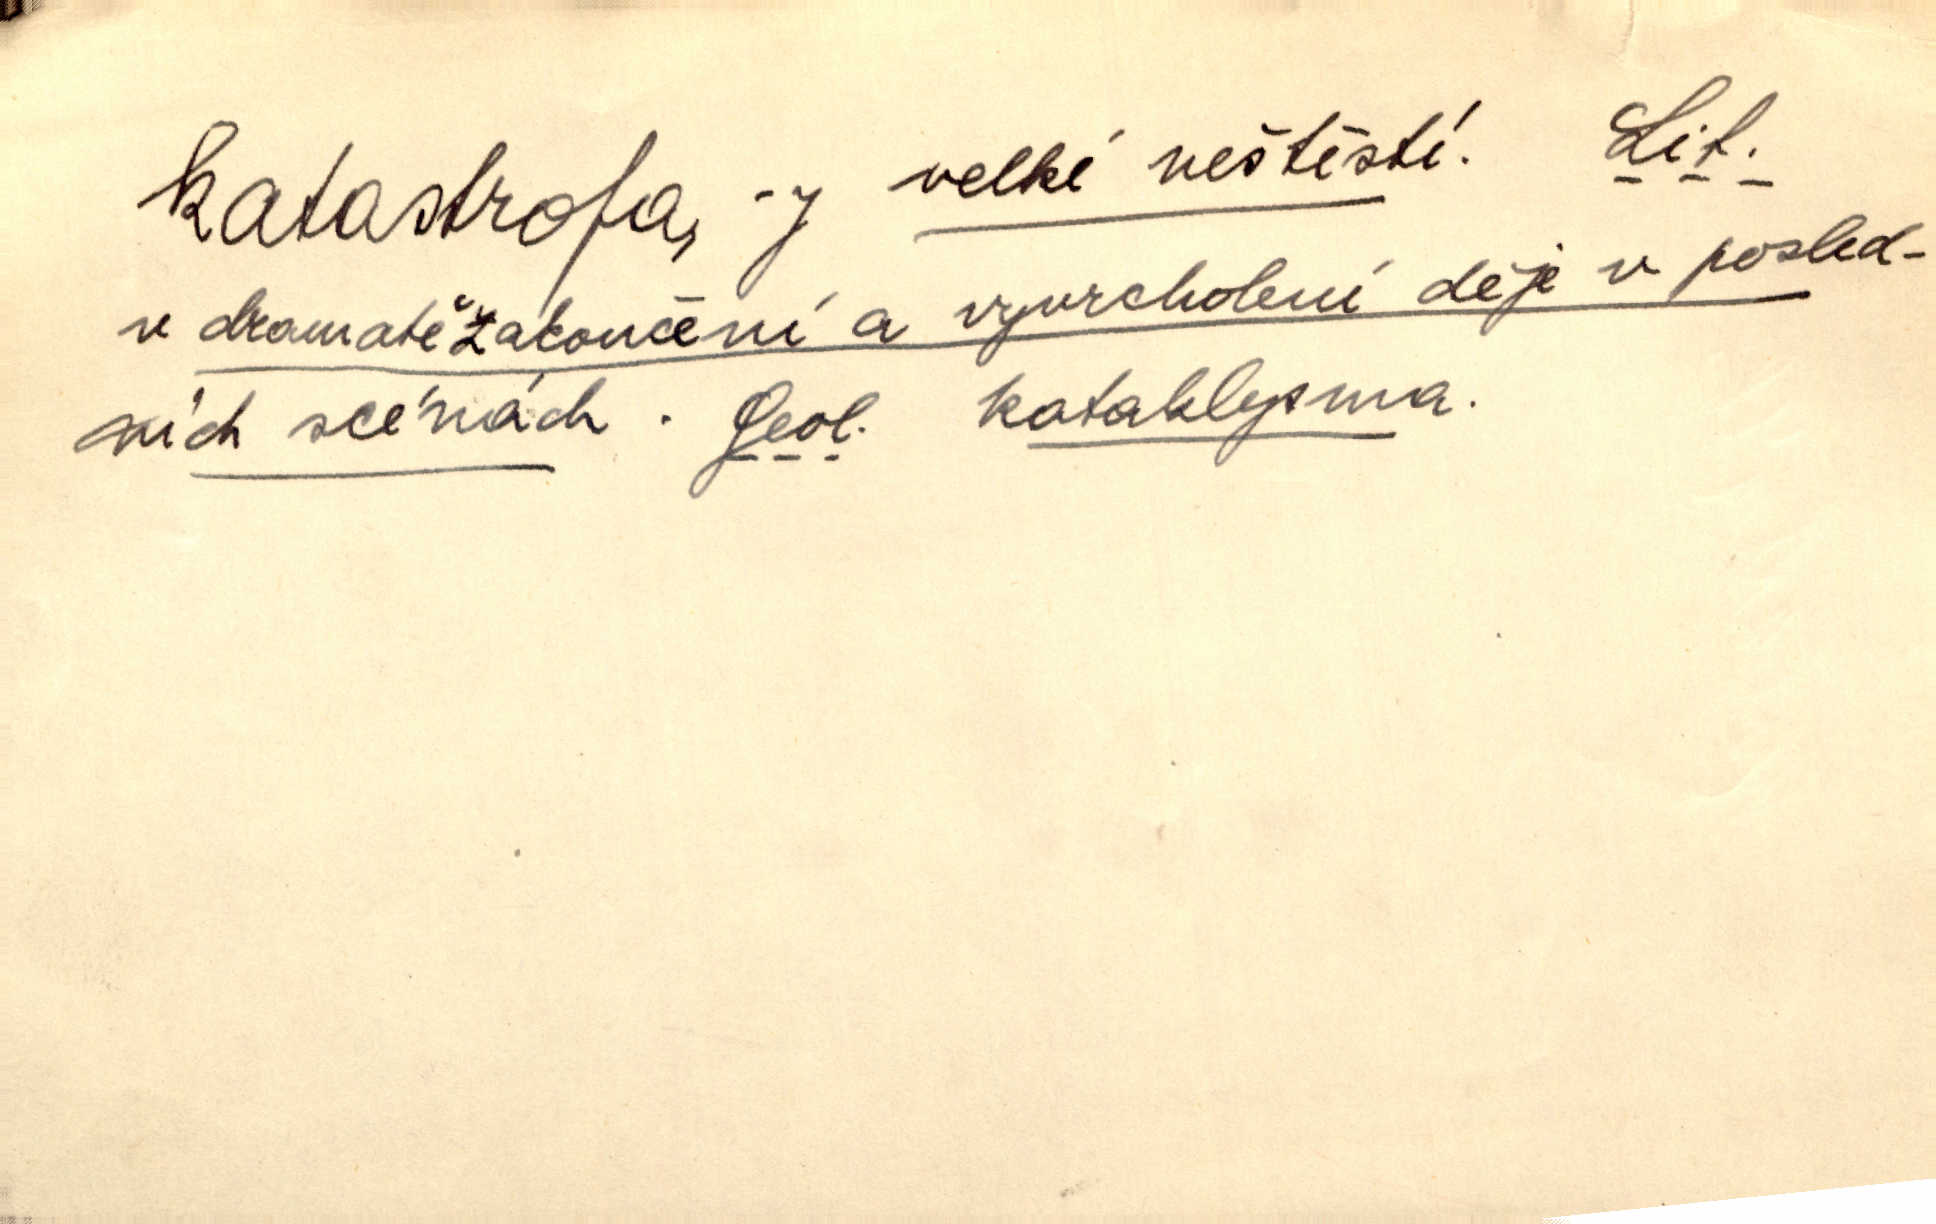 katastrofa, -y velké neštěstí. Lit.
v dramatě zakončení a vyvrcholení děje v posled-
ních scénách. Geol. kataklysma.